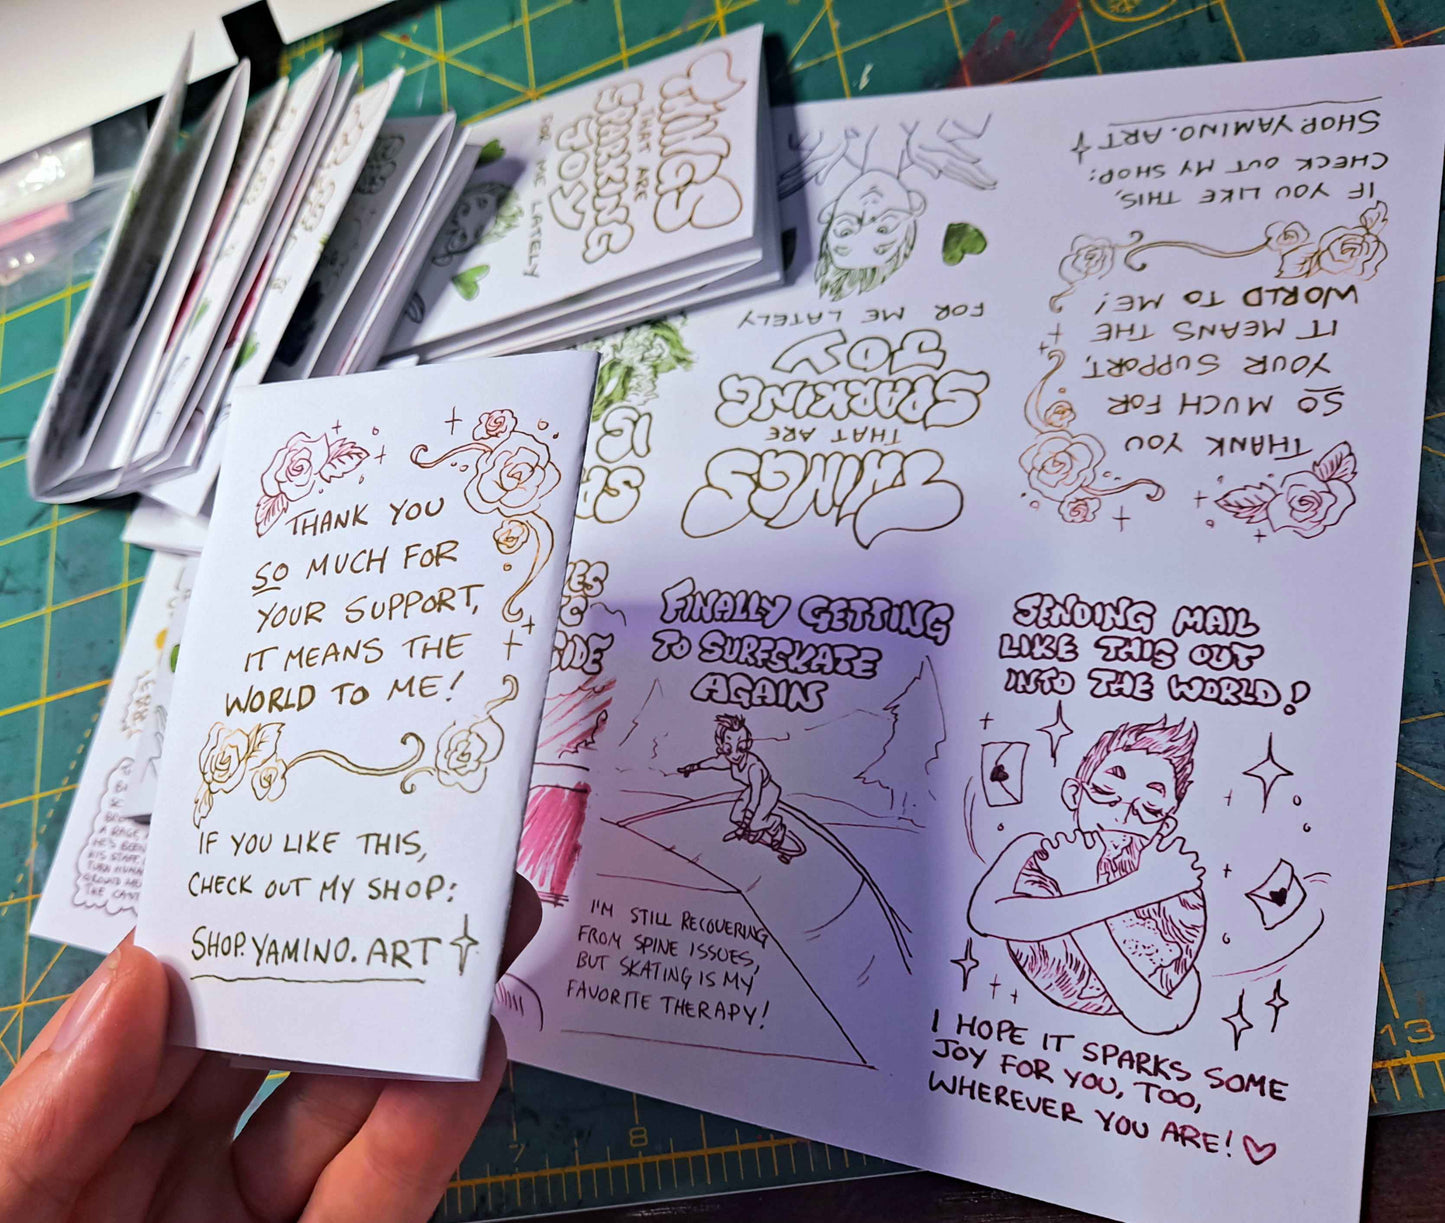 THANK YOU
SO MUCH FOR
YOUR SUPPORT,
IT MEANS THE
WORLD TO ME!
IF YOU LIKE THIS,
CHECK OUT MY SHOP:
SHOP.YAMINO.ART
THINGS
THAT ARE
SPARKING
JOY
FOR ME LATELY
THINGS
THAT ARE
SPARKING
JOY
FOR ME LATELY
THANK YOU
SO MUCH FOR
YOUR SUPPORT,
IT MEANS THE
WORLD TO ME!
IF YOU LIKE THIS,
CHECK OUT MY SHOP:
SHOP.YAMINO.ART
FINALLY GETTING
TO SURFSKATE
AGAIN
I'M STILL RECOVERING
FROM SPINE ISSUES,
BUT SKATING IS MY
FAVORITE THERAPY!
SENDING MAIL
LIKE THIS OUT
INTO THE WORLD!
I HOPE IT SPARKS SOME
JOY FOR YOU, TOO,
WHEREVER YOU ARE!
A RAGE
HE'S BEEN
THE
7
8
13